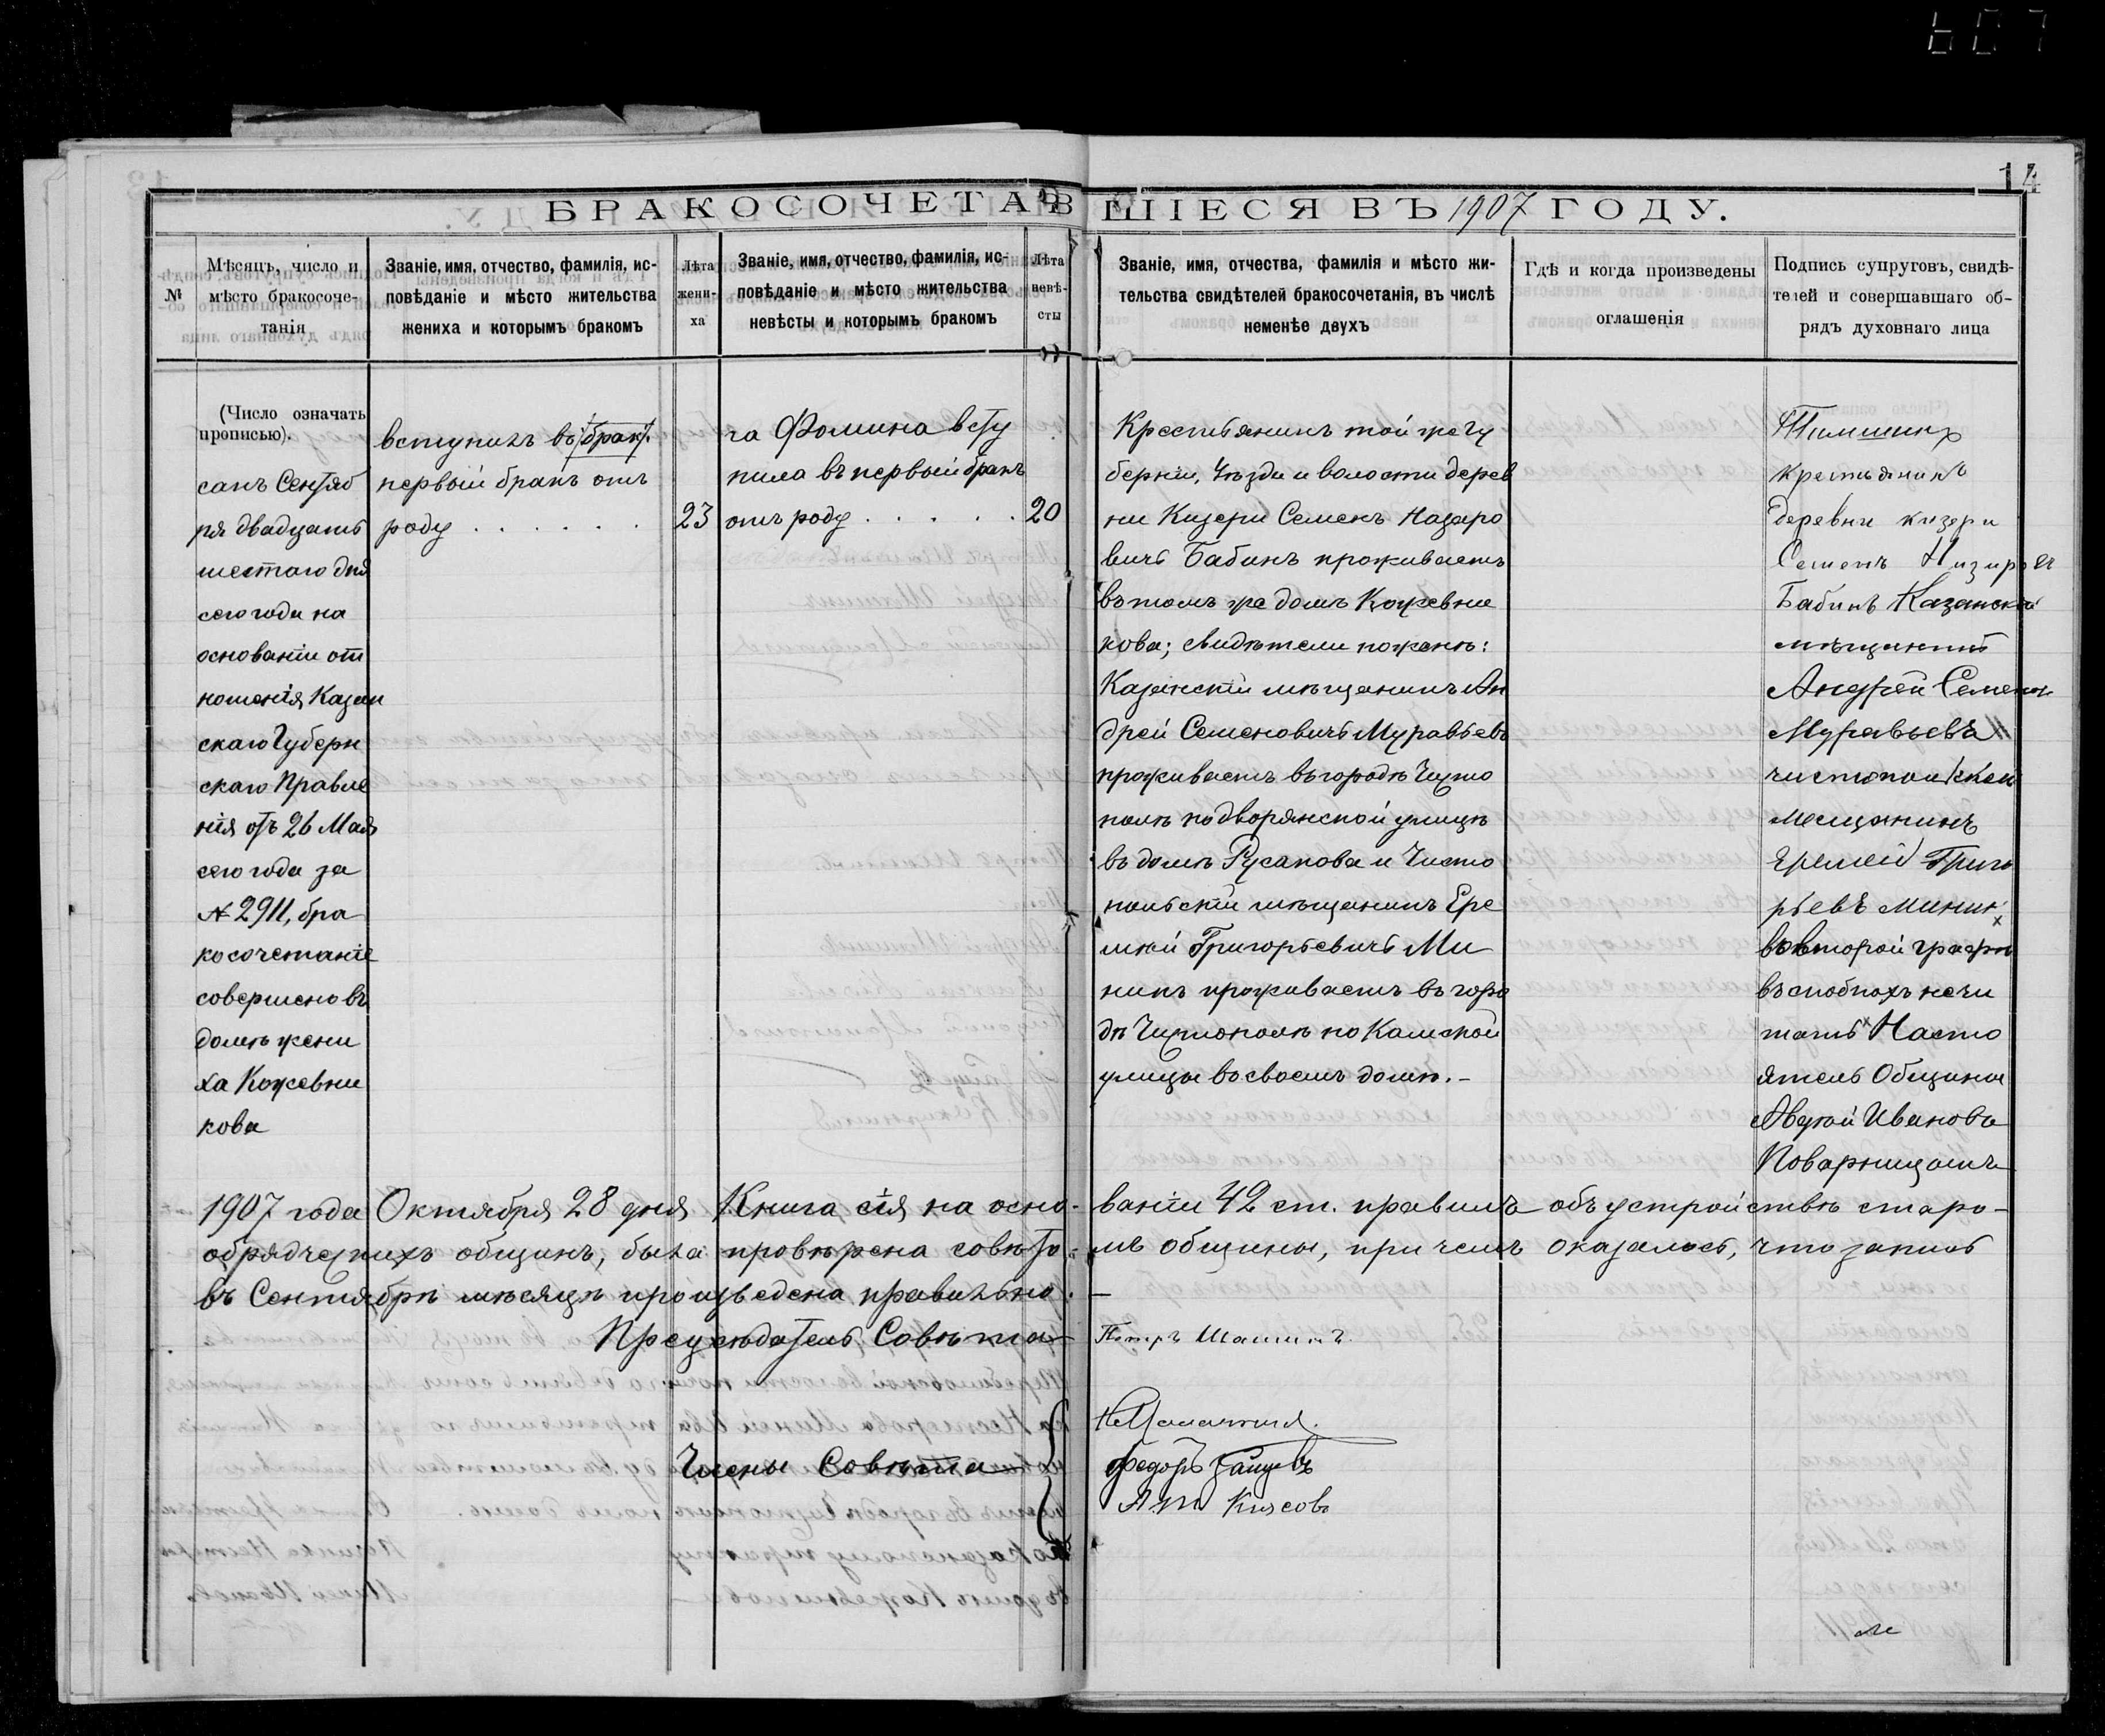 607
14
БРАКОСОЧЕТАВШІЕСЯ ВЪ 1907 ГОДУ.
№
Мѣсяцъ, число и
мѣсто бракосоче-
танія
Званіе, имя, отчество, фамилія, ис-
повѣданіе и мѣсто жительства
жениха и которымъ бракомъ
Лѣта
жени-
ха
Званіе, имя, отчество, фамилія, ис-
повѣданіе и мѣсто жительства
невѣсты и которымъ бракомъ
Лѣта
невѣ-
сты
Званіе, имя, отчества, фамилія и мѣсто жи-
тельства свидѣтелей бракосочетанія, въ числѣ
неменѣе двухъ
Гдѣ и когда произведены
оглашенія
Подпись супруговъ, свидѣ-
телей и совершавшаго об-
рядъ духовнаго лица
(Число означать
прописью).
санъ Сентяб
ря двадцать
шестаго дня
сего года на
основаніи от
ношенія Казан
скаго Губерн
скаго Правле
нія отъ 26 Мая
сего года за
№ 2911, бра
косочетаніе
совершено въ
домѣ жени
ха Кожевни
кова
вступилъ въ /бракъ/.
первый бракъ отъ
роду . . . . . .
23
га Фомина всту
пила въ первый бракъ
отъ роду . . . . .
20
Крестьянинъ той же гу
берніи, Уѣзда и волости дерев
ни Кизери Семенъ Назаро
вичъ Бабинъ проживаетъ
въ томъ же домѣ Кожевни
кова; свидѣтели по женѣ:
Казанскій мѣщанинъ Ан
дрей Семеновичъ Муравьевъ
проживаетъ въ городѣ Чисто
полѣ по дворянской улицѣ
въ домѣ Русанова и Чисто
польскій мѣщанинъ Ере
мѣй Григорьевичъ Ми
нинъ проживаетъ въ горо
дѣ Чистополѣ по Камской
улицы во своемъ домѣ.-
Тимшинъ
крестьянинъ
деревни кизери
Семенъ
Бабинъ Казанскій
мѣщанинъ
Андрей Семенов
Муравьевъ //
чистопольской
мещанинъ
Еремей Григо
рьевъ минин
во второй графѣ
въ скобкахъ не чи
тать Насто
ятель Общины
Иванов
Поварницынъ
1907 года Октября 28 дня Книга сія на осно-
ваніи 42 ст. правилъ объ устройствѣ старо-
обрядческихъ общинъ, была провѣрена совѣто-
мъ общины, при чемъ оказалось, что запись
въ Сентябрѣ мѣсяцѣ произведена правильно. -
Предсѣдатель Совѣта
Петръ Шашинъ.
Члены Совѣта
Федоръ Зайцевъ